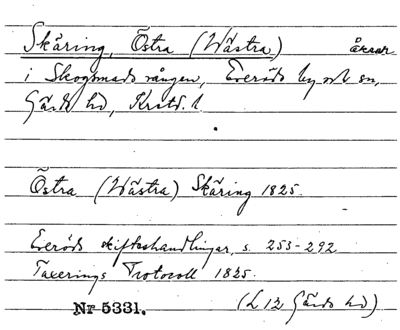 Skäring, Östra (Wästra) åkrar
i Skogsmadsvången, Everöds by och sn,
Gärds hd, Krstd. l.
Östra (Wästra) Skäring 1825.
Everöds skifteshandlingar, s. 253-292
Taxerings Protocoll 1825.
Nr 5331. (L 12 Gärds hd)